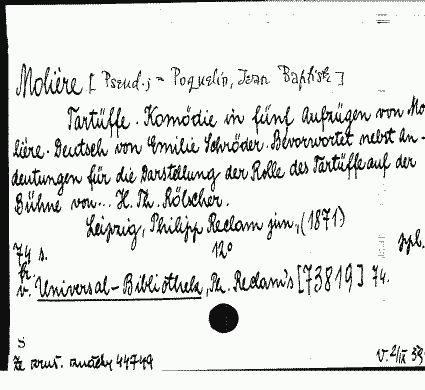 Molière [Pseud.; = Poquelin, Jean Baptiste]
Tartüffe. Komödie in fünf Aufzügen von Mo-
lière. Deutsch von Emilie Schröder. Bevorwortet nebst An-
deutungen für die Darstellung der Rolle des Tartüffe auf der
Bühne von... H. Th. Rötscher.
Leipzig, Philipp Reclam jun., (1871)
74 s. 12°
fr. ppl.
v. Universal-Bibliothek, Ph. Reclam's [73819] 74.
S
Ze zruš. značky 44749 V. 2/IX 53